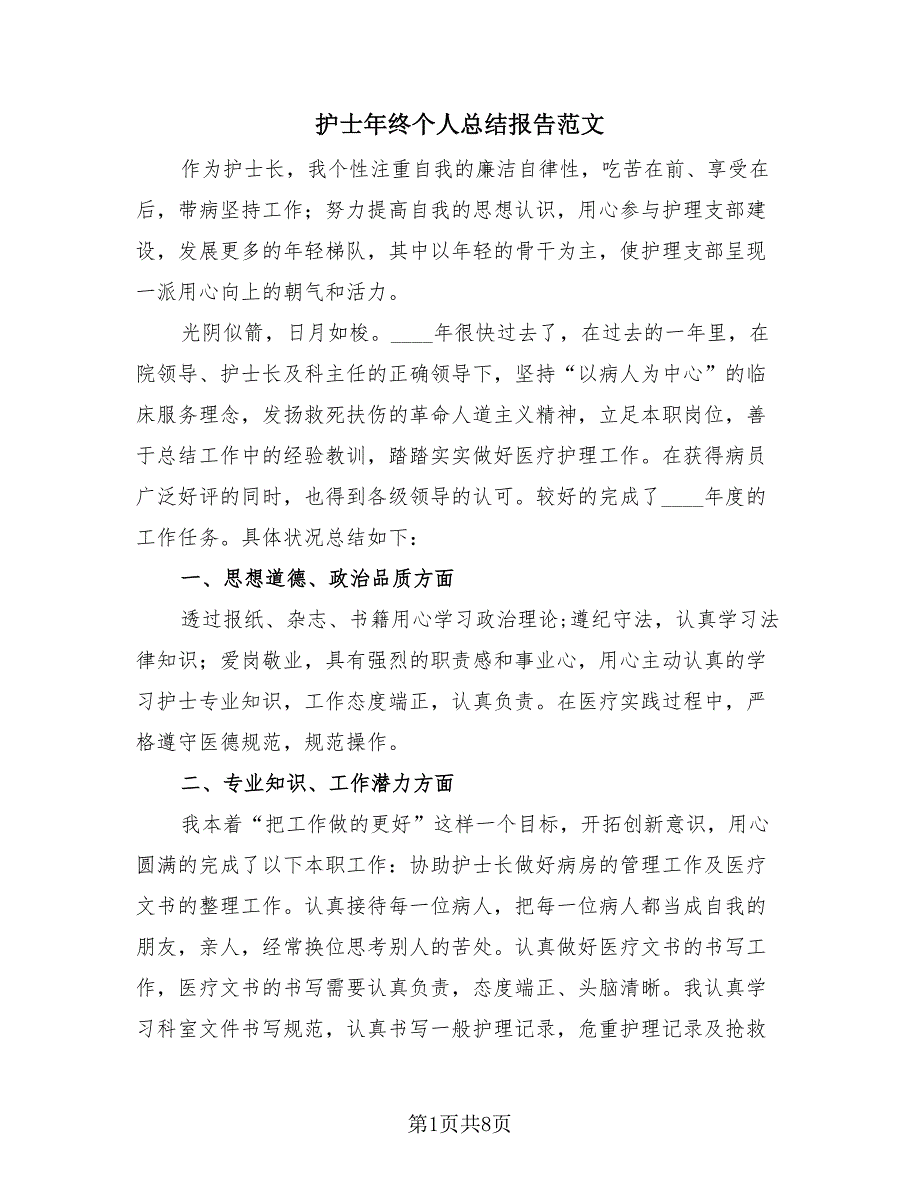 护士年终个人总结报告范文
作为护士长，我个性注重自我的廉洁自律性，吃苦在前、享受在
后，带病坚持工作；努力提高自我的思想认识，用心参与护理支部建
设，发展更多的年轻梯队，其中以年轻的骨干为主，使护理支部呈现
一派用心向上的朝气和活力。
光阴似箭，日月如梭。____年很快过去了，在过去的一年里，在
院领导、护士长及科主任的正确领导下，坚持“以病人为中心”的临
床服务理念，发扬救死扶伤的革命人道主义精神，立足本职岗位，善
于总结工作中的经验教训，踏踏实实做好医疗护理工作。在获得病员
广泛好评的同时，也得到各级领导的认可。较好的完成了____年度的
工作任务。具体状况总结如下：
一、思想道德、政治品质方面
透过报纸、杂志、书籍用心学习政治理论;遵纪守法，认真学习法
律知识；爱岗敬业，具有强烈的职责感和事业心，用心主动认真的学
习护士专业知识，工作态度端正，认真负责。在医疗实践过程中，严
格遵守医德规范，规范操作。
二、专业知识、工作潜力方面
我本着“把工作做的更好”这样一个目标，开拓创新意识，用心
圆满的完成了以下本职工作：协助护士长做好病房的管理工作及医疗
文书的整理工作。认真接待每一位病人，把每一位病人都当成自我的
朋友，亲人，经常换位思考别人的苦处。认真做好医疗文书的书写工
作，医疗文书的书写需要认真负责，态度端正、头脑清晰。我认真学
习科室文件书写规范，认真书写一般护理记录，危重护理记录及抢救
第1页共8页